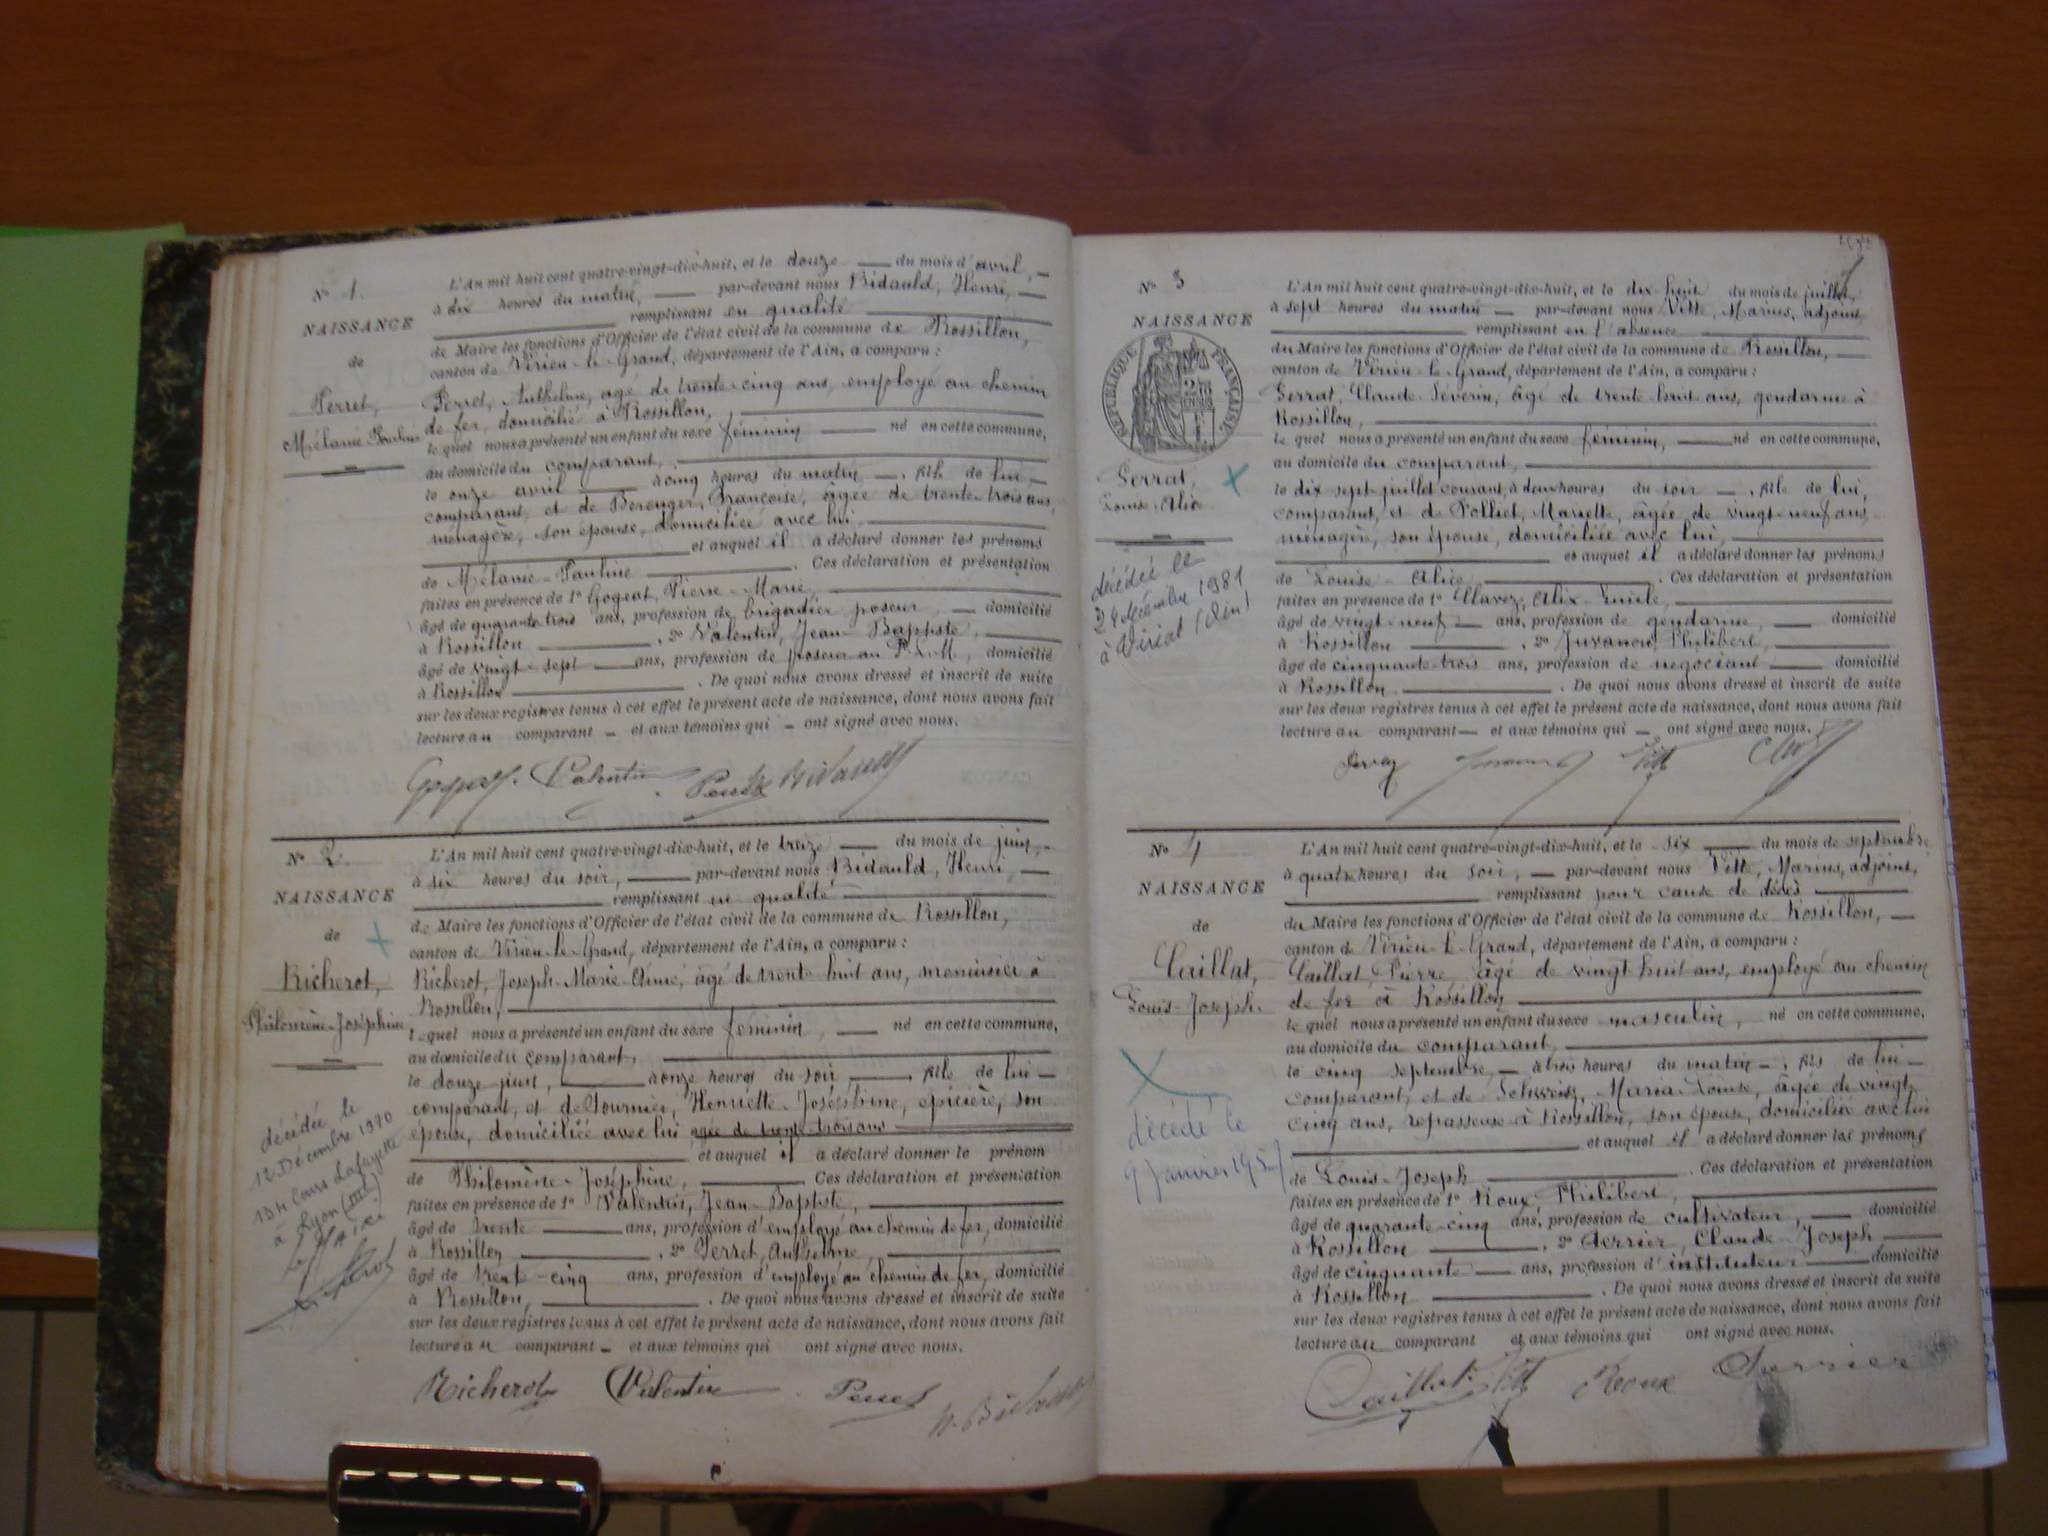 N° 1.
NAISSANCE
de
Perret,
Mélanie-Pauline
L'An mil huit cent quatre-vingt-dix-huit, et le douze du mois d'avril,
à dix heures du matin, par-devant nous Bidauld, Henri,
remplissant en qualité
de Maire les fonctions d'Officier de l'état civil de la commune de Rossillon,
canton de Virieu-le-Grand, département de l'Ain, a comparu :
Perret, Anthelme, âgé de trente-cinq ans, employé au chemin
de fer, domicilié à Rossillon,
lequel nous a présenté un enfant du sexe féminin né en cette commune,
au domicile du comparant,
le onze avril à cinq heures du matin, fille de lui,
comparant, et de Berenger, Françoise, âgée de trente-trois ans,
ménagère, son épouse, domiciliée avec lui,
et auquel il a déclaré donner les prénoms
de Mélanie-Pauline. Ces déclaration et présentation
faites en présence de 1° Gogeat, Pierre-Marie,
âgé de quarante trois ans, profession de brigadier poseur, domicilié
à Rossillon, 2° Valentin, Jean-Baptiste,
âgé de vingt-sept ans, profession de poseur au P.L.M., domicilié
à Rossillon. De quoi nous avons dressé et inscrit de suite
sur les deux registres tenus à cet effet le présent acte de naissance, dont nous avons fait
lecture au comparant et aux témoins qui ont signé avec nous.
Valentin Perret Bidauld
N° 2.
NAISSANCE
de
Richerot,
Philomène-Joséphine
décédée le
12 Décembre 1970
134 Cours Lafayette
à Lyon (III)
L'An mil huit cent quatre-vingt-dix-huit, et le treize du mois de juin,
à six heures du soir, par-devant nous Bidauld, Henri,
remplissant en qualité
de Maire les fonctions d'Officier de l'état civil de la commune de Rossillon,
canton de Virieu-le-Grand, département de l'Ain, a comparu :
Richerot, Joseph-Marie-Aimé, âgé de trente huit ans, menuisier à
Rossillon,
lequel nous a présenté un enfant du sexe féminin, né en cette commune,
au domicile du comparant,
le douze juin, à onze heures du soir, fille de lui
comparant, et de Fournier, Henriette-Joséphine, épicière, son
épouse, domiciliée avec lui agée de trente trois ans
et auquel il a déclaré donner le prénom
de Philomène-Joséphine, Ces déclaration et présentation
faites en présence de 1° Valentin, Jean-Baptiste,
âgé de trente ans, profession d'employé au chemin de fer, domicilié
à Rossillon, 2° Perret, Anthelme,
âgé de trente-cinq ans, profession d'employé au chemin de fer, domicilié
à Rossillon, . De quoi nous avons dressé et inscrit de suite
sur les deux registres tenus à cet effet le présent acte de naissance, dont nous avons fait
lecture au comparant et aux témoins qui ont signé avec nous.
Richerot Valentin Perret H. Bidauld
N° 3
NAISSANCE
RÉPUBLIQUE FRANÇAISE
Gerrat,
Louise-Alice
décédée le
24 décembre 1981
à Viriat (Ain)
L'An mil huit cent quatre-vingt-dix-huit, et le dix-huit du mois de juillet,
à sept heures du matin par-devant nous Vitte, Marius, adjoint
remplissant en l'absence
du Maire les fonctions d'Officier de l'état civil de la commune de Rossillon,
canton de Virieu-le-Grand, département de l'Ain, a comparu :
Gerrat, Claude-Séverin, âgé de trente-huit ans, gendarme à
Rossillon,
lequel nous a présenté un enfant du sexe féminin, né en cette commune,
au domicile du comparant,
le dix sept juillet courant, à deux heures du soir, fille de lui,
comparant, et de Polliet, Mariette, âgée de vingt-neuf ans,
ménagère, son épouse, domiciliée avec lui,
et auquel il a déclaré donner les prénoms
de Louise-Alice, . Ces déclaration et présentation
faites en présence de 1° Clavez, Alix-Emile,
âgé de vingt-neuf ans, profession de gendarme, domicilié
à Rossillon, 2° Juvanon, Philibert,
âgé de cinquante-trois ans, profession de négociant domicilié
à Rossillon. De quoi nous avons dressé et inscrit de suite
sur les deux registres tenus à cet effet le présent acte de naissance, dont nous avons fait
lecture au comparant et aux témoins qui ont signé avec nous.
Vitte
N° 4
NAISSANCE
de
Caillat,
Louis-Joseph.
décédé le
9 janvier 195
L'An mil huit cent quatre-vingt-dix-huit, et le six du mois de septembre
à quatre heures du soir, par-devant nous Vitte, Marius, adjoint,
remplissant pour cause de décès
du Maire les fonctions d'Officier de l'état civil de la commune de Rossillon,
canton de Virieu-le-Grand, département de l'Ain, a comparu :
Caillat, Pierre, âgé de vingt huit ans, employé au chemin
de fer à Rossillon
lequel nous a présenté un enfant du sexe masculin, né en cette commune,
au domicile du comparant,
le cinq septembre, à trois heures du matin, fils de lui
comparant, et de Schweitz, Maria-Louise, âgée de vingt
cinq ans, repasseuse à Rossillon, son épouse, domiciliée avec lui
et auquel il a déclaré donner les prénoms
de Louis-Joseph. Ces déclaration et présentation
faites en présence de 1° Roux, Philibert,
âgé de quarante-cinq ans, profession de cultivateur, domicilié
à Rossillon, 2° Derrier, Claude-Joseph
âgé de cinquante ans, profession d'instituteur domicilié
à Rossillon. De quoi nous avons dressé et inscrit de suite
sur les deux registres tenus à cet effet le présent acte de naissance, dont nous avons fait
lecture au comparant et aux témoins qui ont signé avec nous.
Caillat Vitte Roux Derrier